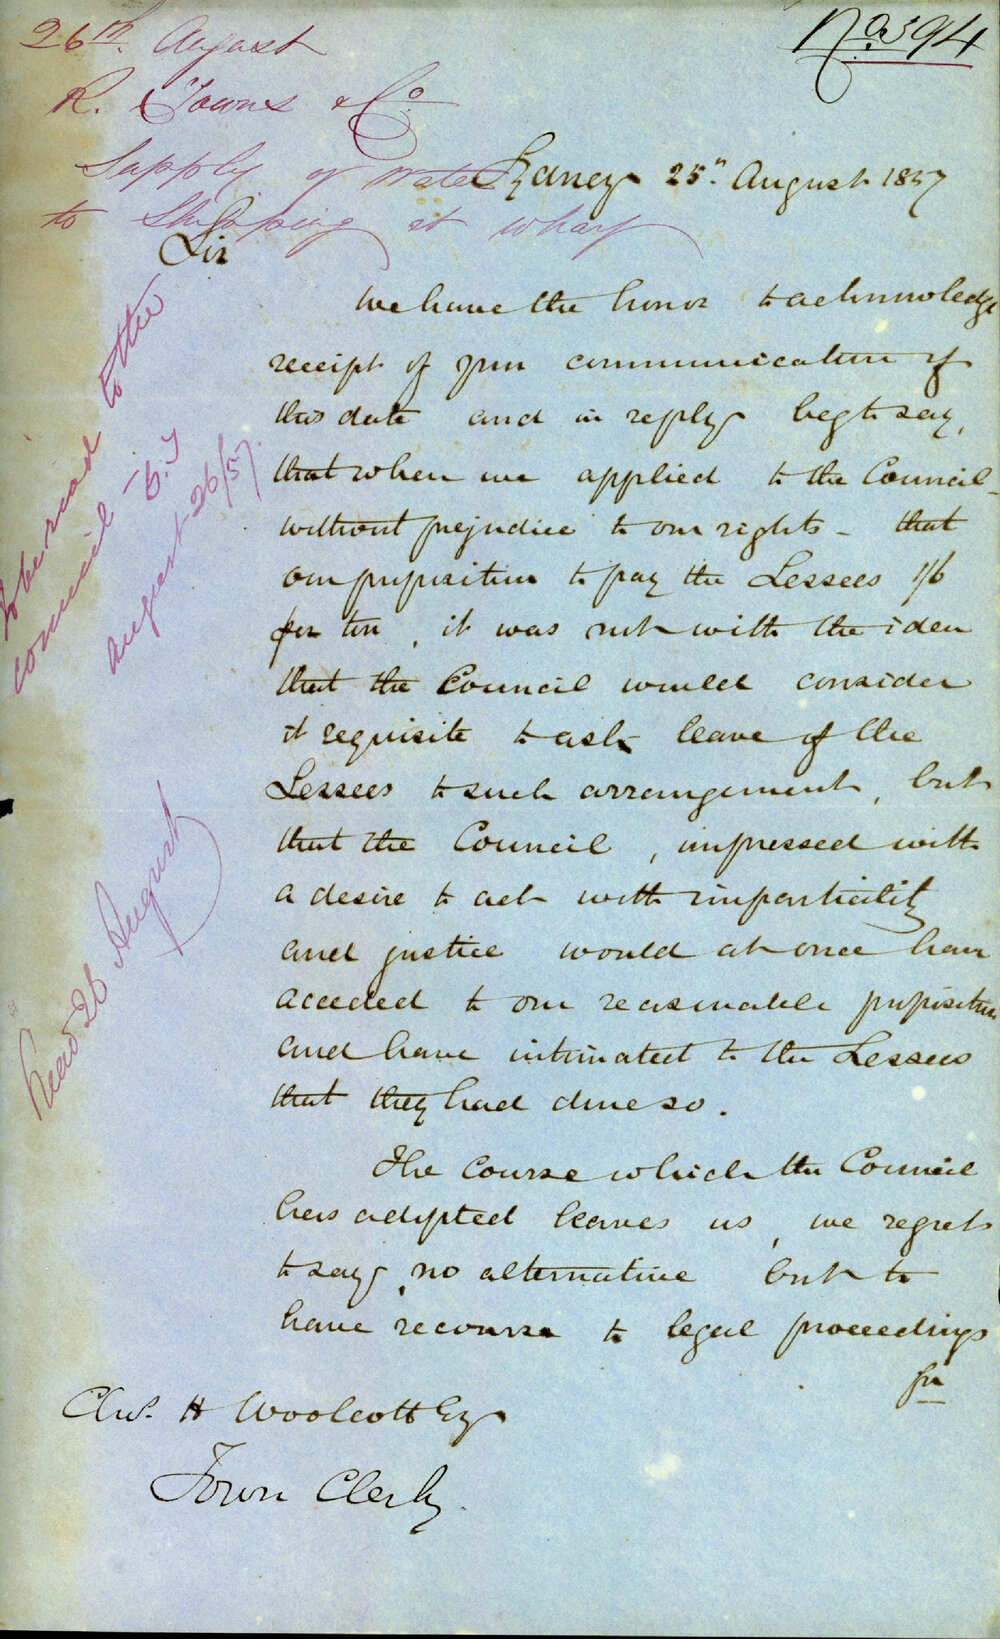 No. 394
26th August
R. Towns & Co
Supply of Water
to Shipping at wharf
Sydney 25th August 1857
Sir
We have the honor to acknowledge
receipt of your communication of
this date and in reply beg to say,
that when we applied to the Council -
without prejudice to our rights - that
our proposition to pay the Lessees 1/6
per tun, it was not with the idea
that the Council would consider
it requisite to ask leave of the
Lessees to such arrangement, but
that the Council, impressed with
a desire to act with impartiality
and justice would at once have
acceded to our reasonable proposition
and have intimated to the Lessees
that they had done so.
The course which the Council
has adopted leaves us, we regret
to say, no alternative but to
have recourse to legal proceedings
for
Chas. H Woolcott Esq
Town Clerk.
To be read to the
Council
August 26/57
Read 26 August